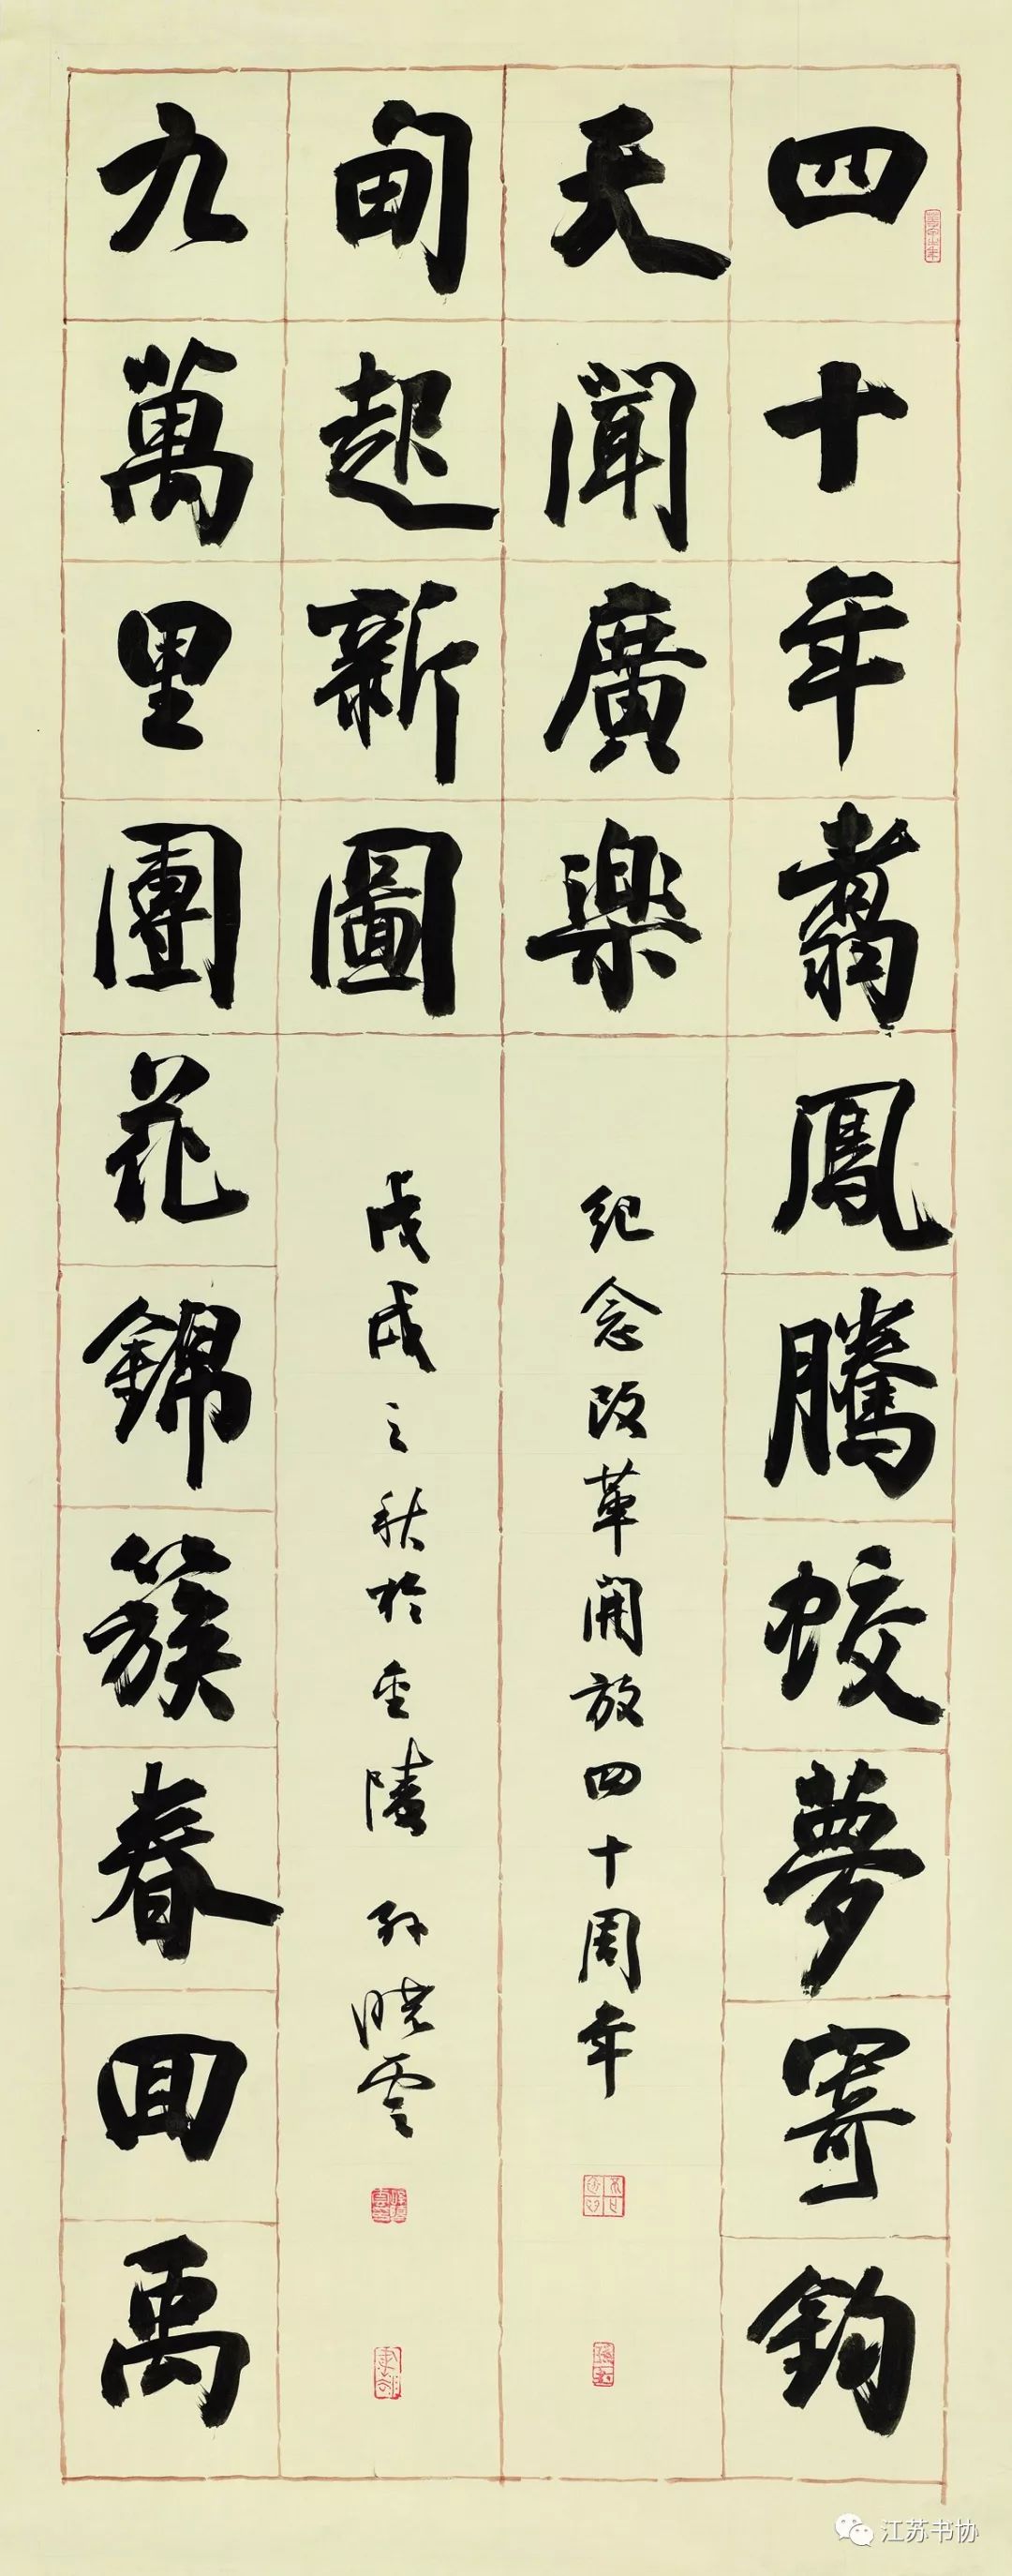 四十年翥鳳騰蛟夢寄鈞
天聞廣樂
紀念改革開放四十周年
九萬里團花錦簇春回禹
甸起新圖
戊戌之秋於金陵 孫曉雲
江苏书协